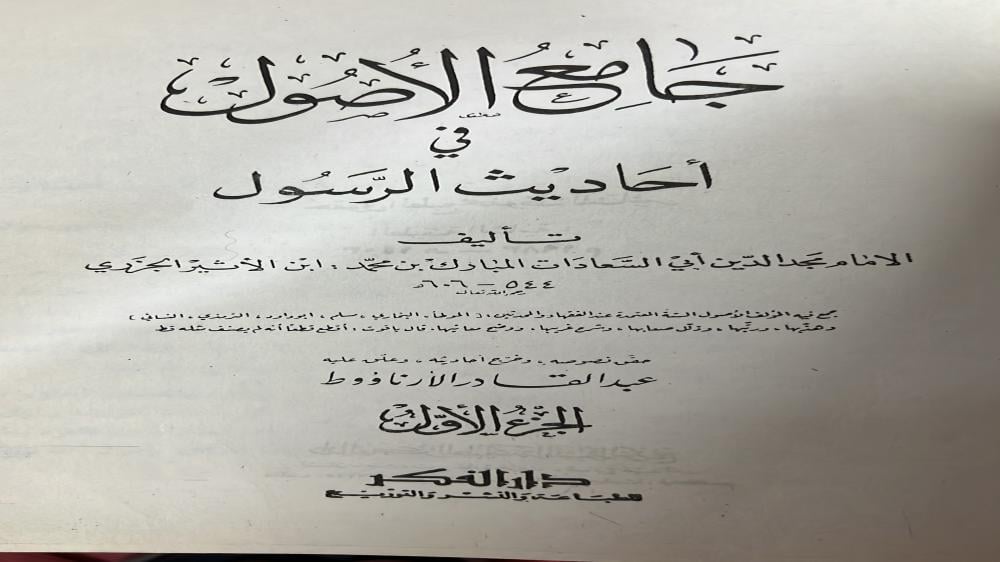 جَامِعُ الأُصُول
في
أحَاديث الرَّسُول
تأليف
الامام مجد الدين أبي السَّعادَات المبارك بن محمّد : ابن الأثير الجزري
٥٤٤ - ٦٠٦هـ
رحمه الله تعالى
جمع فيه المؤلف الأصول الستة المعتمدة عند الفقهاء والمحدثين : ( الموطأ ، البخاري ، مسلم ، ابوداود ، الترمذي ، النسائي )
وهذّبها ، ورتبها ، وذلل صعابها ، وشرح غريبها ، ووضح معانيها ، قال ياقوت : أقطع قطعاً أنه لم يصنف مثله قط
حقق نصوصه ، وخرج أحاديثه ، وعلق عليه
عبد القادر الأرناؤوط
الجزء الأول
دار الفكر
للطباعة والنشر والتوزيع